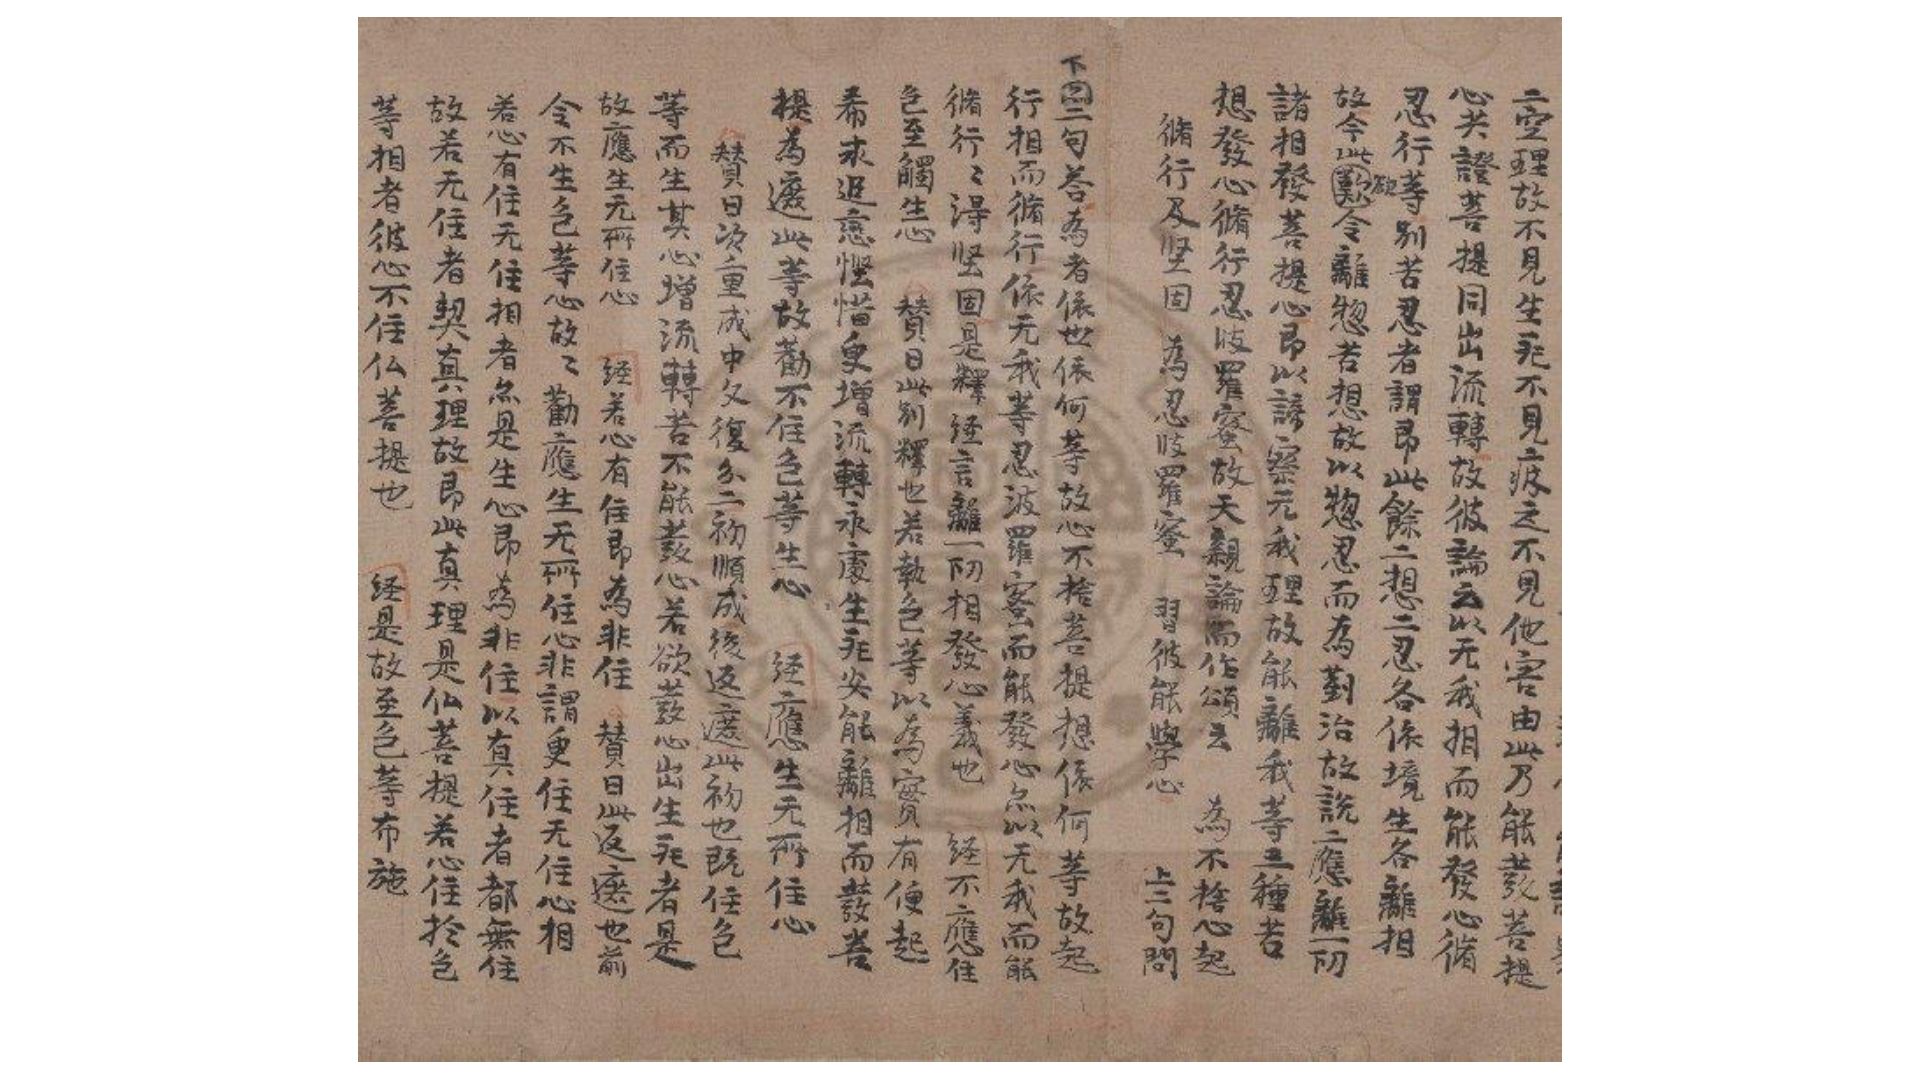 二空理故不見生死不見疲乏不見他害由此乃能發菩提
心共證菩提同出流轉故彼論云以无我相而能發心脩
忍行等別苦忍者謂即此餘二想二忍各依境生各離相
故今此歎欲令離惣苦想故以惣忍而為對治故說二應離一切
諸相發菩提心即以諦察无我理故能離我等三種苦
想發心脩行忍波羅蜜故天親論而作頌云 為不捨心起
脩行及坚固 為忍波羅蜜 習彼能學心 上三句問
下一二句荅為者依也依何等故心不捨菩提想依何等故起
行相而脩行依无我等忍波羅蜜而能發心亦以无我而能
脩行〻得坚固是釋經言離一切相發心義也 經不應住
色至觸生心 賛曰此別釋也若執色等以為實有便起
希求追戀慳惜更增流轉永處生死安能離相而發菩
提為遮此等故勸不住色等生心 經應生无所住心
賛曰次重成中文復分二初順成後返遮此初也既住色
等而生其心增流轉苦不能發心若欲發心出生死者是
故應生无所住心 經若心有住即為非住 賛曰此返遮也前
令不生色等心故〻勸應生无所住心非謂更住无住心相
若心有住无住相者亦是生心即為非住以真住者都無住
故若无住者契真理故即此真理是仏菩提若心住於色
等相者彼心不住仏菩提也 經是故至色等布施